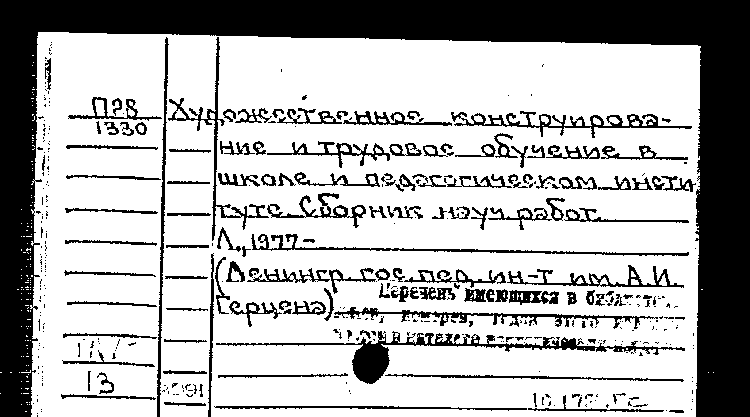 П28
1330
Художественное конструирова-
ние и трудовое обучение в
школе и педагогическом инсти
туте. Сборник науч. работ.
Л., 1977-
(Ленингр. гос. пед. ин-т им. А.И.
Герцена)
Перечень имеющихся в
13